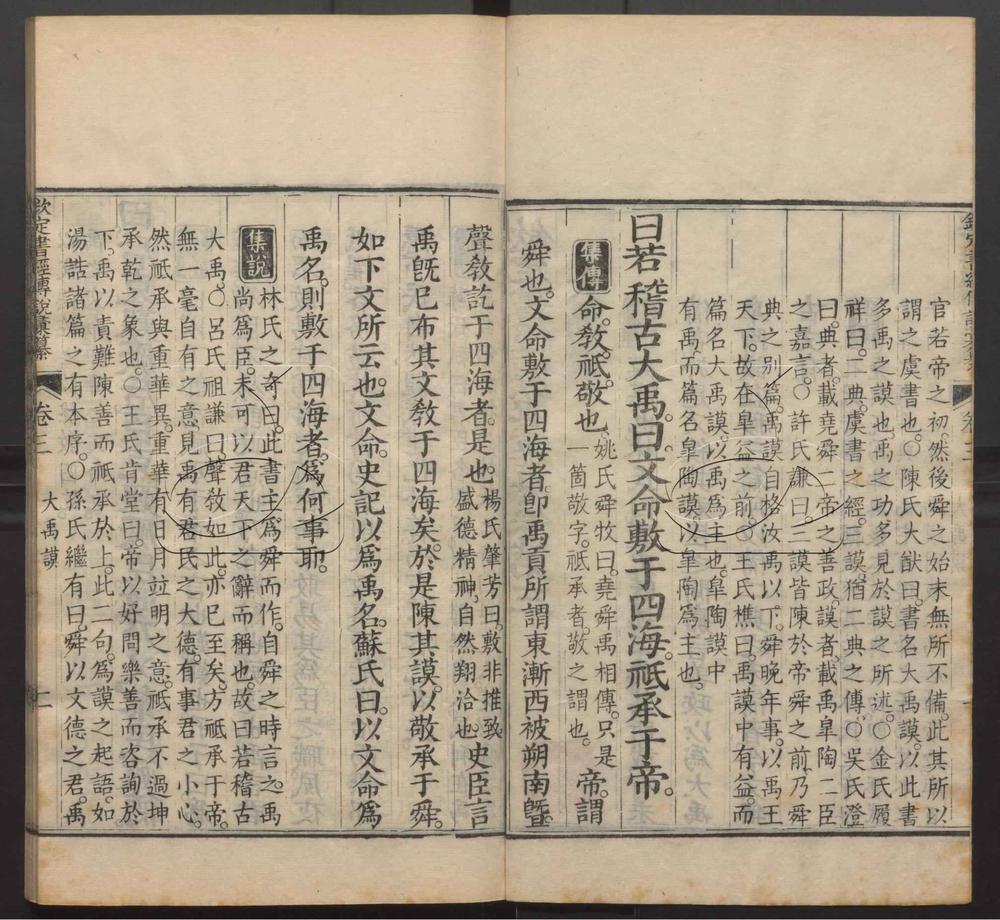 官若帝之初。然後舜之始末無所不備。此其所以
謂之虞書也。○陳氏大猷曰。書名大禹謨。以此書
多禹之謨也。禹之功多見於謨之所述。○金氏履
祥曰。二典虞書之經。三謨猶二典之傳。○吳氏澄
曰。典者。載堯舜二帝之善政。謨者。載禹皋陶二臣
之嘉言。○許氏謙曰。三謨皆陳於帝舜之前。乃舜
典之別篇。禹謨自格汝禹以下。舜晚年事。以禹王
天下。故在皐益之前。○王氏樵曰。禹謨中有益。而
篇名大禹謨。以禹爲主也。皐陶謨中
有禹。而篇名皐陶謨。以皐陶爲主也。
曰若稽古大禹。曰文命敷于四海。祇承于帝。
集傳
命。敎。祇。敬也。
姚氏舜牧曰。堯舜禹相傳。只是
一箇敬字。祇承者。敬之謂也。
帝。謂
舜也。文命敷于四海者。卽禹貢所謂東漸西被朔南曁
聲敎訖于四海者是也。
楊氏肇芳曰。敷非推致。
盛德精神。自然翔洽也。
史臣言
禹旣已布其文敎于四海矣。於是陳其謨。以敬承于舜。
如下文所云也。文命。史記以爲禹名。蘇氏曰。以文命爲
禹名。則敷于四海者。爲何事耶。
集說
林氏之奇曰。此書主爲舜而作。自舜之時言之。禹
尚爲臣。未可以君天下之辭而稱也。故曰若稽古
大禹。○呂氏祖謙曰。聲敎如此。亦已至矣。方祇承于帝。
無一毫自有之意。見禹有君民之大德。有事君之小心。
然祇承與重華異。重華有日月竝明之意。祇承不過坤
承乾之象也。○王氏肯堂曰。帝以好問樂善而咨詢於
下。禹以責難陳善而祇承於上。此二句。爲謨之起語。如
湯誥諸篇之有本序。○孫氏繼有曰。舜以文德之君。禹
欽定書經傳說彙纂
卷三
大禹謨